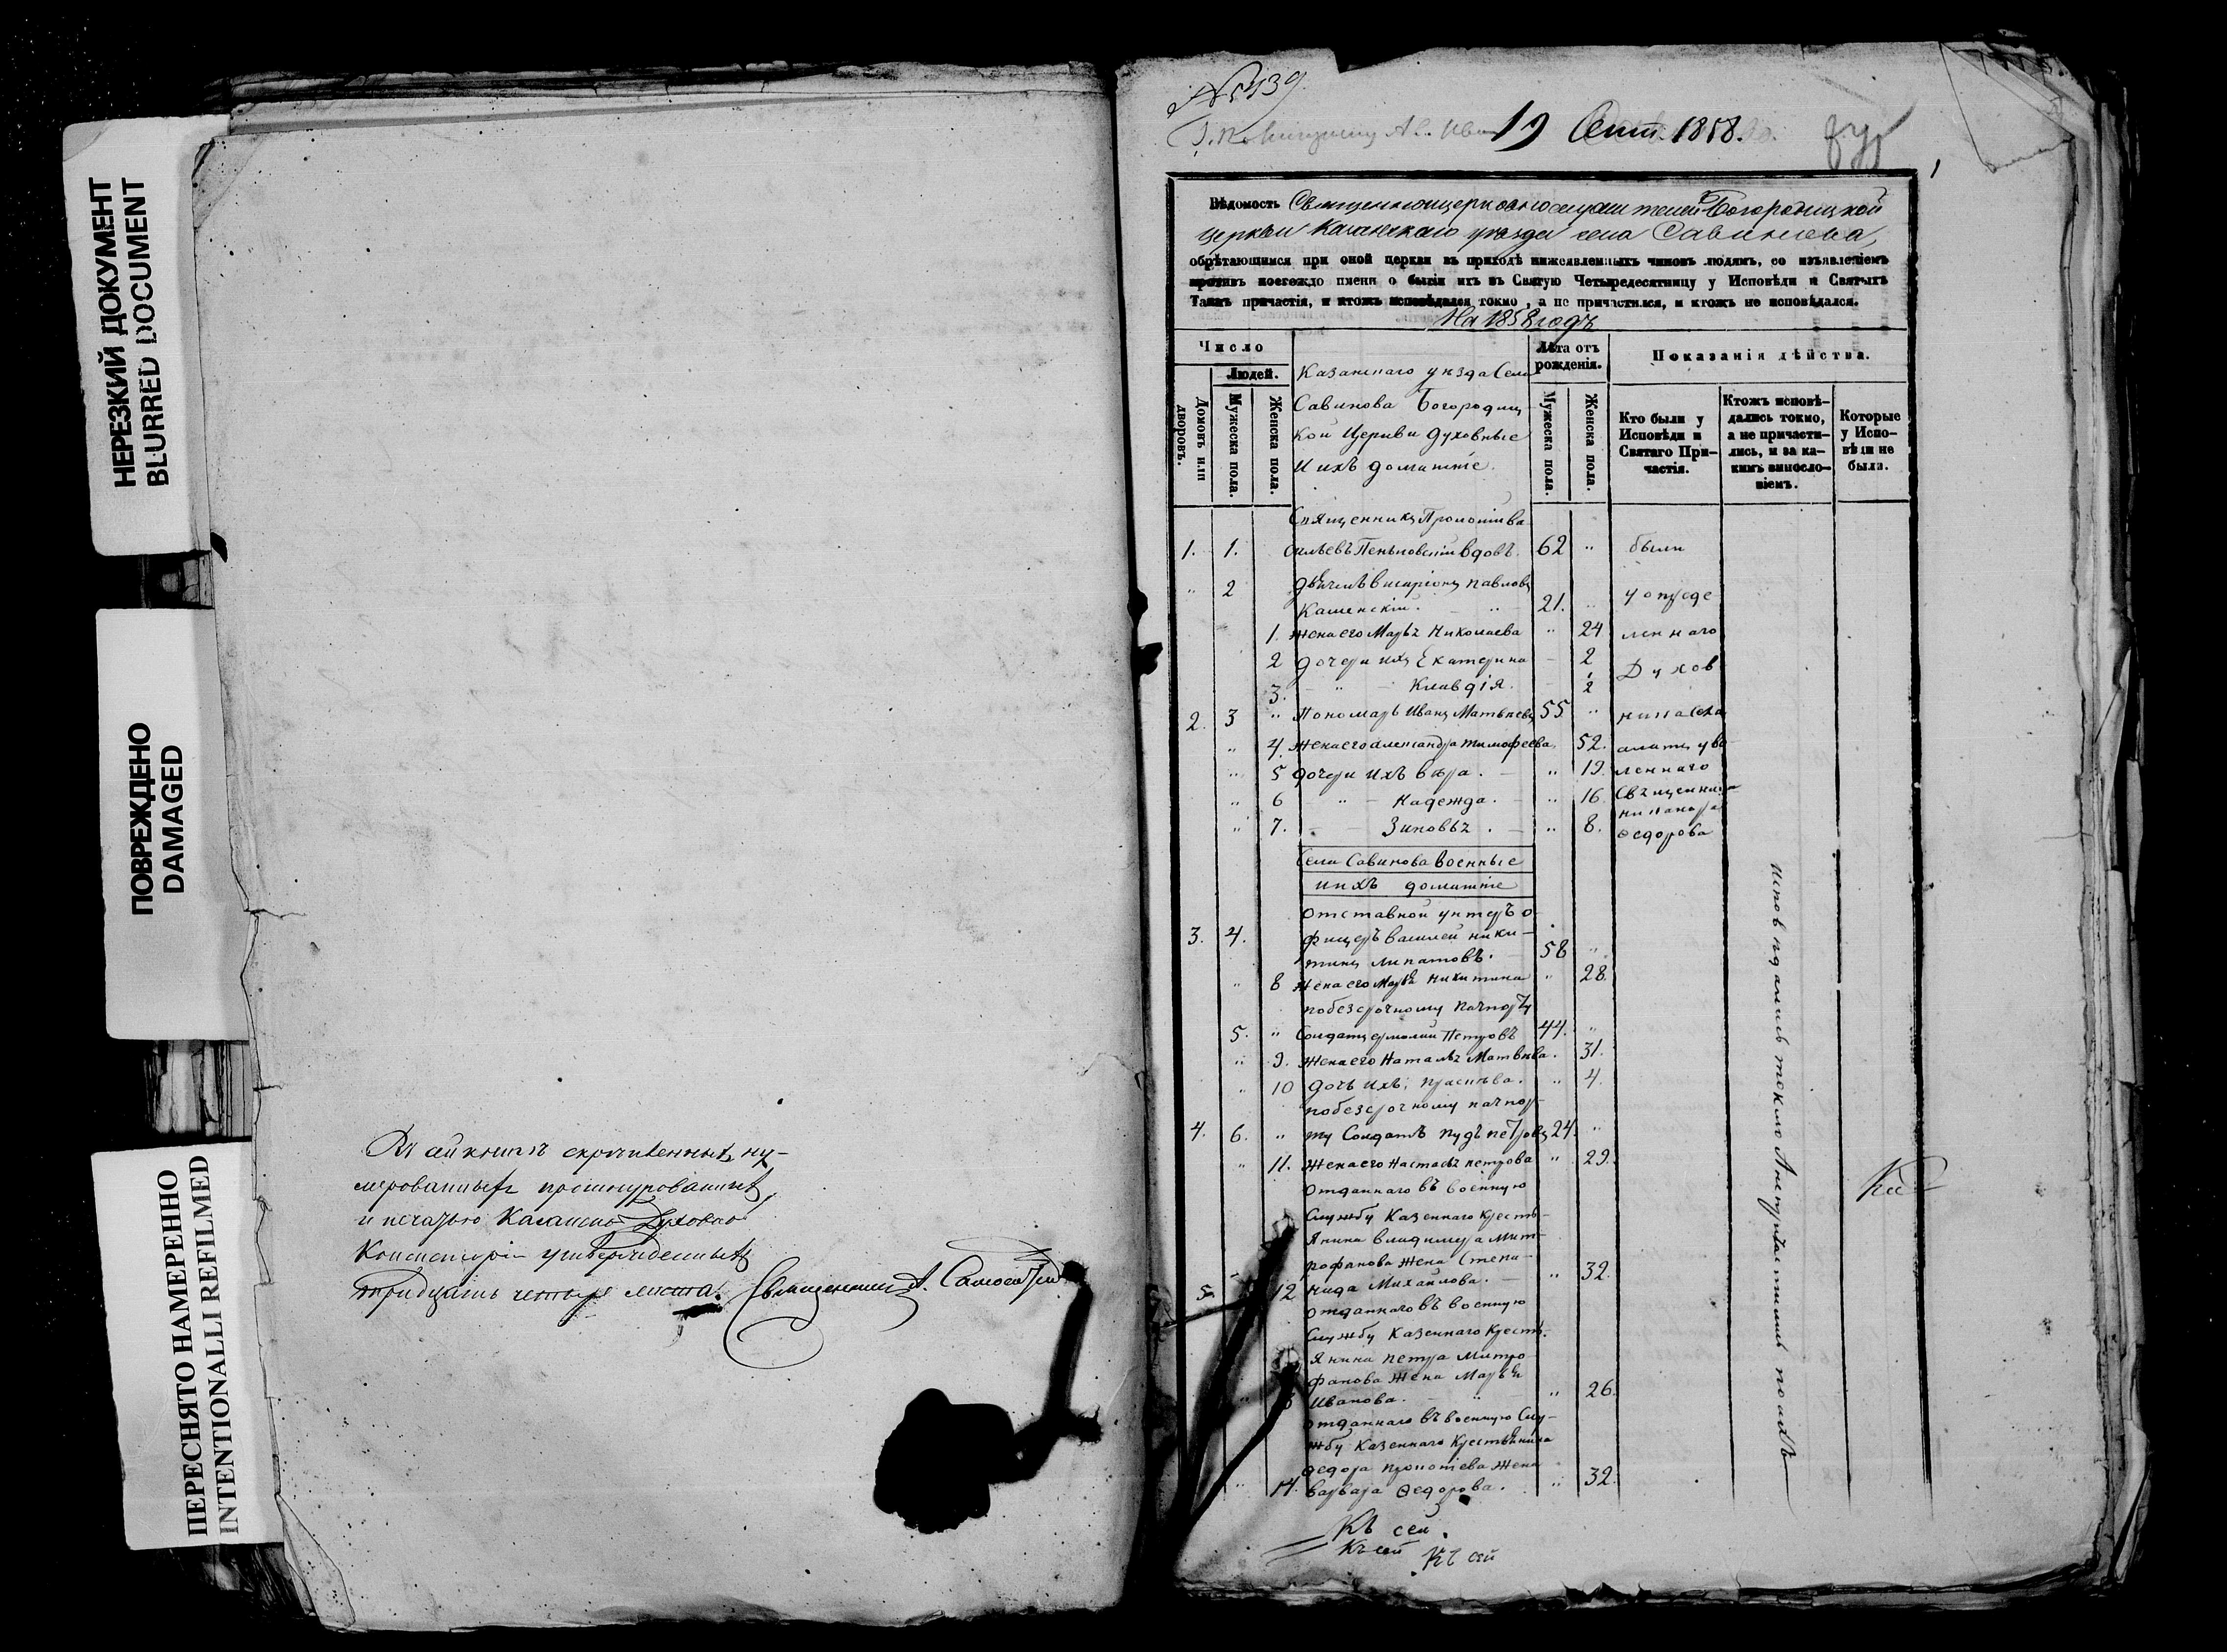 НЕРЕЗКИЙ ДОКУМЕНТ
BLURRED DOCUMENT
ПОВРЕЖДЕНО
DAMAGED
ПЕРЕСНЯТО НАМЕРЕННО
INTENTIONALLI REFILMED
нумерованныхъ прошнурованныхъ
и печатью Казанской Духовной
Консисторіи утвержденныхъ
тридцать четыре листа. Священникъ А.
№ 5439.
19 Сент. 1858.
1
Вѣдомость Священноцерковнослужителей Богородицкой
церкви Казанскаго уѣзда села Савинова,
обрѣтающимся при оной церкви въ приходѣ нижеявленныхъ чиновъ людямъ, со изъявленіемъ
противъ коегождо имени о бытіи ихъ въ Святую Четыредесятницу у Исповѣди и Святыхъ
Таинъ причастія, и ктожъ исповѣдался токмо, а не причастился, и ктожъ не исповѣдался.
На 1858 годъ
Число
Людей.
Домовъ или дворовъ.
Мужеска пола.
Женска пола.
Казанскаго уѣзда Села
Савинова Богородиц-
кой Церкви Духовные
и ихъ домашніе.
Лѣта отъ рожденія.
Мужеска пола.
Женска пола.
Показанія дѣйства.
Кто были у
Исповѣди и
Святаго При-
частія.
Ктожъ исповѣ-
дались токмо,
а не причасти-
лись, и за ка-
кимъ виносло-
віемъ.
Которые
у Испо-
вѣди не
были.
Священникъ Прокопій Ва
1. 1. сильевъ Пеньковскій вдовъ. 62 " были
" 2 Павловъ
Каменскій. 21. " у опреде
1. жена его Марья Николаева " 24 леннаго
2 дочери ихъ Екатерина 2 Духов
3. " Клавдія. 2
2. 3 " Пономарь Иванъ Матвѣевъ 55 "
" 4. Жена его Александра Тимофеева 52.
" 5 дочери ихъ вѣра. " 19. леннаго
" 6 " Надежда. " 16. Священника
" 7. Зиновья. " 8. никанора
Федорова
Села Савинова Военные
и ихъ домашніе
Отставной унтеръ о-
3. 4. фицеръ Василей Ники-
тинъ Липатовъ. 58 "
" 8 Жена его Марья Никитина " 28.
по безсрочному пачпорту
5. " Солдатъ Ермолай Петровъ 44. "
" 9. Жена его Наталья Матвѣева. 31.
" 10 дочь ихъ, Прасковья. " 4.
по безсрочному пачпор-
4. 6. " ту Солдатъ Пудъ Петровъ 24. "
" 11. Жена его Настасья Петрова " 29.
Отданнаго въ военную
Службу Казеннаго Кресть-
янина Владимера Мит-
рофанова жена Степа-
5. 12 нида Михайлова. " 32.
Отданнаго въ военную
Службу Казеннаго Кресть-
янина Петра Митро
фанова Жена Марья
Иванова. " 26.
Отданнаго въ военную Слу-
жбу Казеннаго Крестьянина
Федора Прокопіева Жена
" 14. Варвара Федорова. " 32.
исповѣдались токмо А непричастились по
Къ сей
Къ сей Къ сей